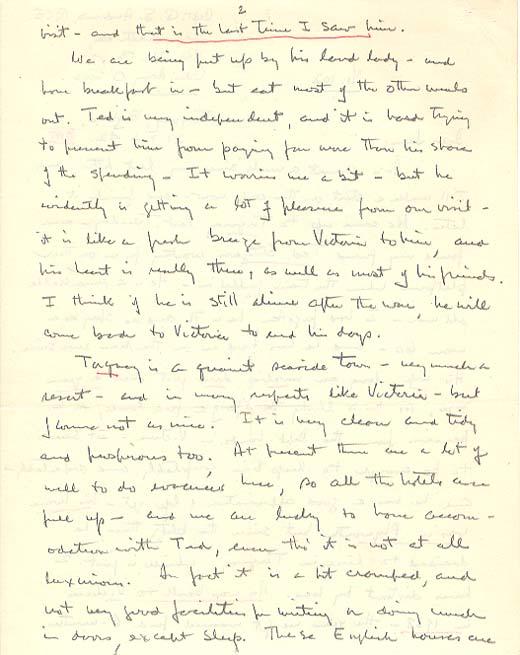 2
visit - and that is the last time I saw him.
We are being put up by his land lady - and
have breakfast in - but eat most of the other meals
out. Ted is very independent, and it is hard trying
to prevent him from paying far more than his share
of the spending - It worries me a bit - but he
evidently is getting a lot of pleasure from our visit -
it is like a fresh breeze from Victoria to him, and
his heart is really there, as well as most of his friends.
I think if he is still alive after the war, he will
come back to Victoria to end his days.
Torquay is a quaint seaside town - very much a
resort - and in many respects like Victoria - but
not as nice. It is very clean and tidy
and prosperous too. At present there are a lot of
well to do evacuees here, so all the hotels are
full up - and we are lucky to have accom-
odation with Ted, even tho' it is not at all
luxurious. In fact it is a bit cramped, and
not very good facilities for writing or doing much
in doors, except sleep. These English houses are